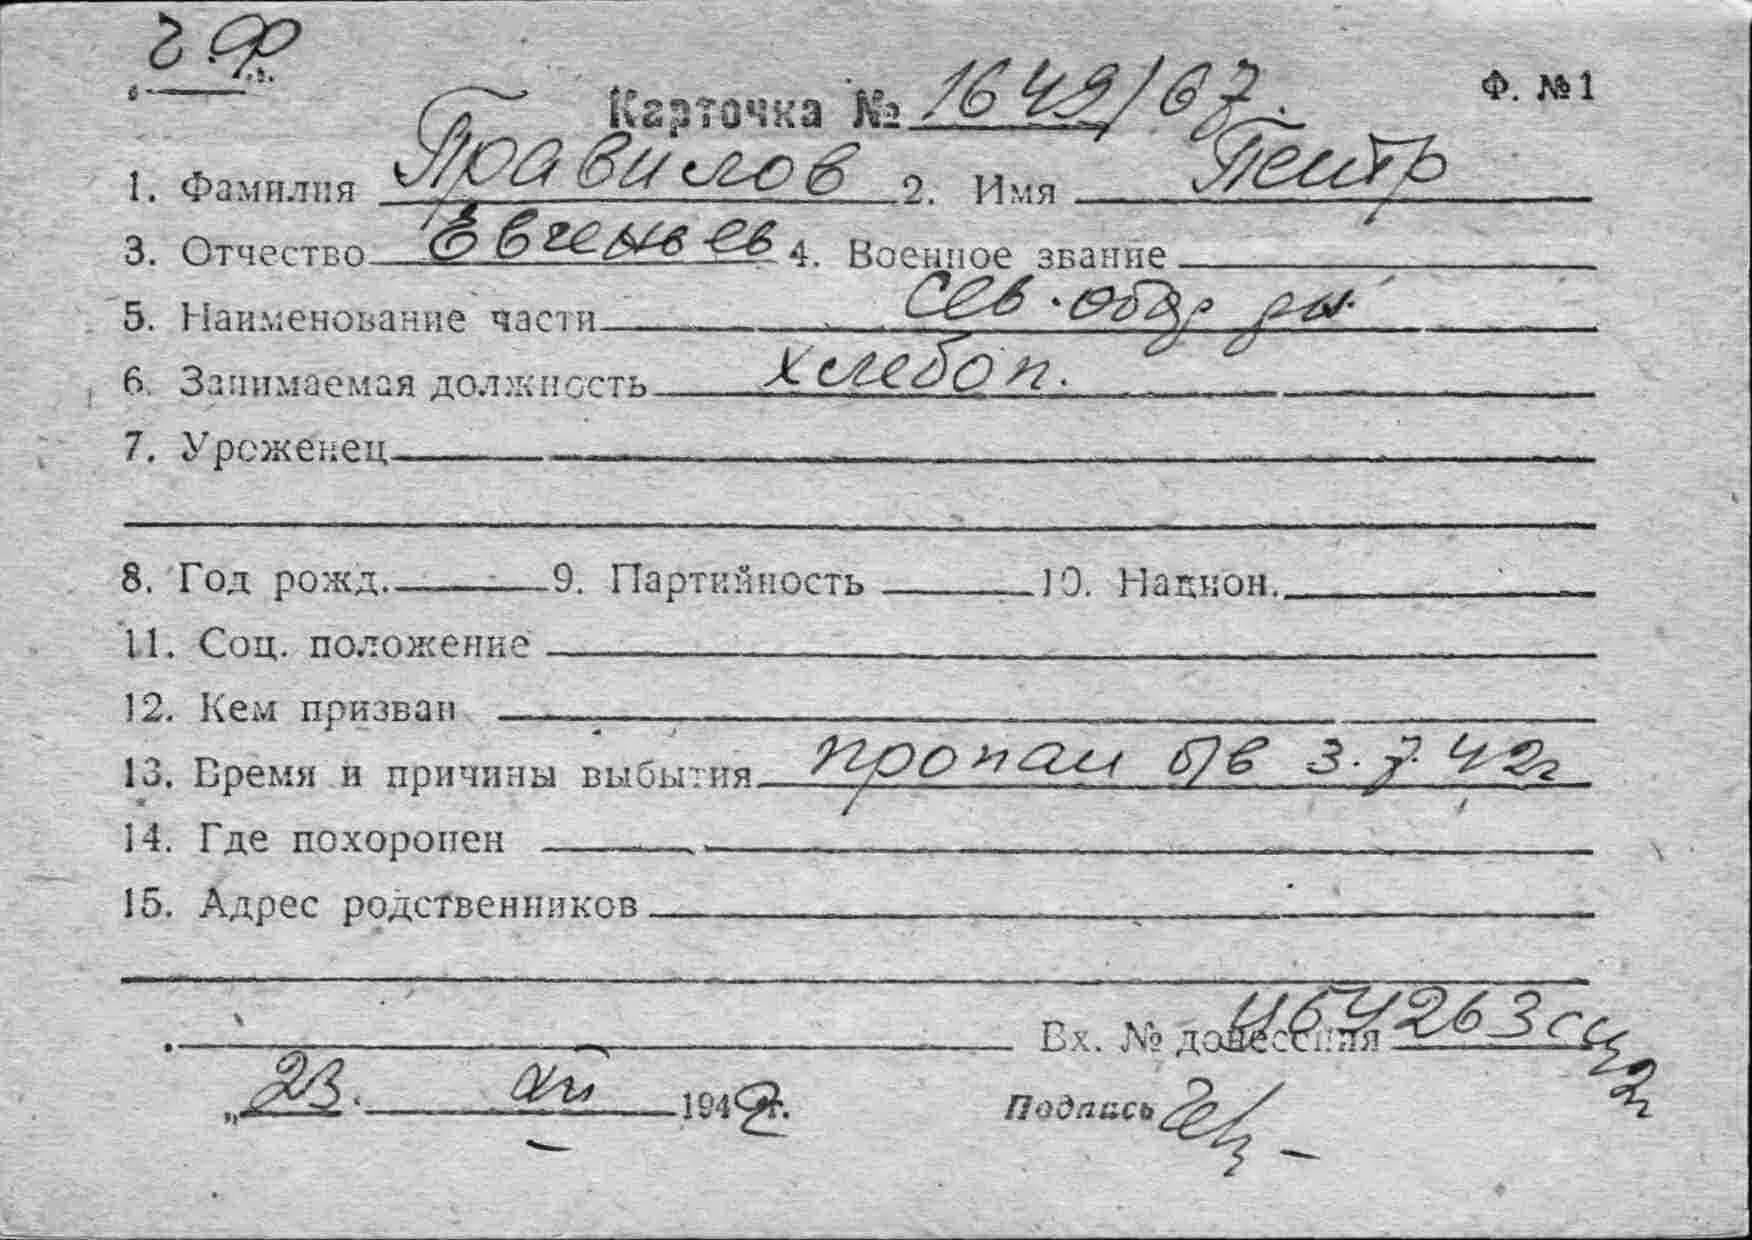 ч.ф
Карточка № 1649/67. Ф. №1
1. Фамилия Правилов 2. Имя Петр
3. Отчество Евгеньев 4. Военное звание
5. Наименование части Сев.
6. Занимаемая должность хлебоп.
7. Уроженец
8. Год рожд. 9. Партийность 10. Национ.
11. Соц. положение
12. Кем призван
13. Время и причины выбытия пропал б/в 3.7.42г
14. Где похоронен
15. Адрес родственников
Вх. № донесения
„23. XII 1942г.
Подпись